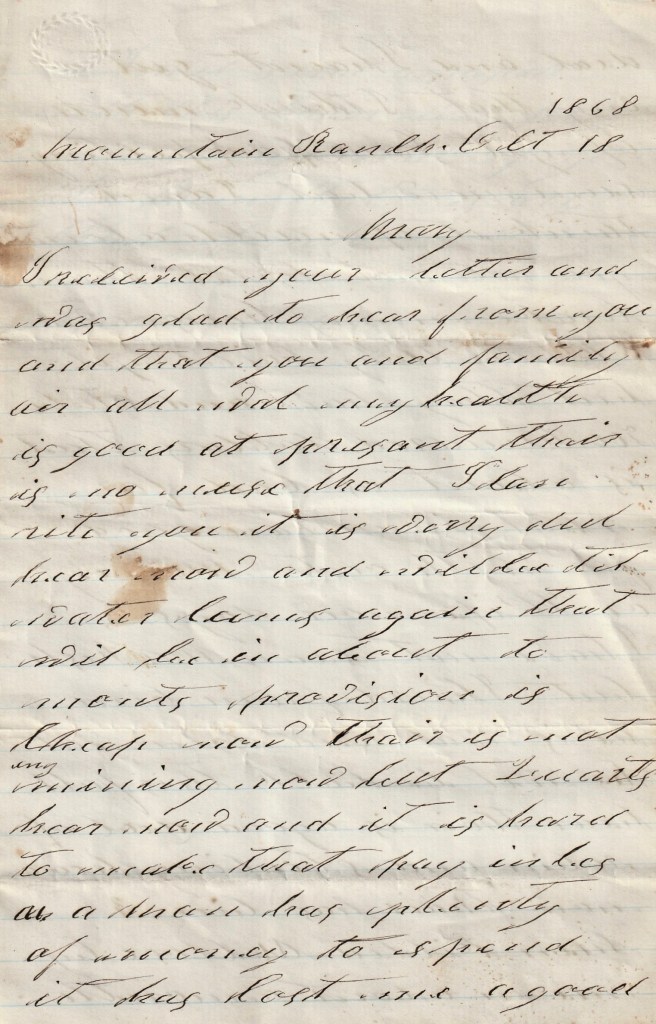 1868
Mountain Ranch. Oct 18
Mary
I received your letter and
was glad to hear from you
and that you and family
air all wel my health
is good at presant thair
is no neuse that I can
rite you it is verry dul
hear now and wil be til
water comes again that
wil be in about to
monts provision is
cheap now thair is not
eny
mining now but Quarts
hear now and it is hard
to make that pay inles
as a man has plenty
of money to spend
it has cost me a good